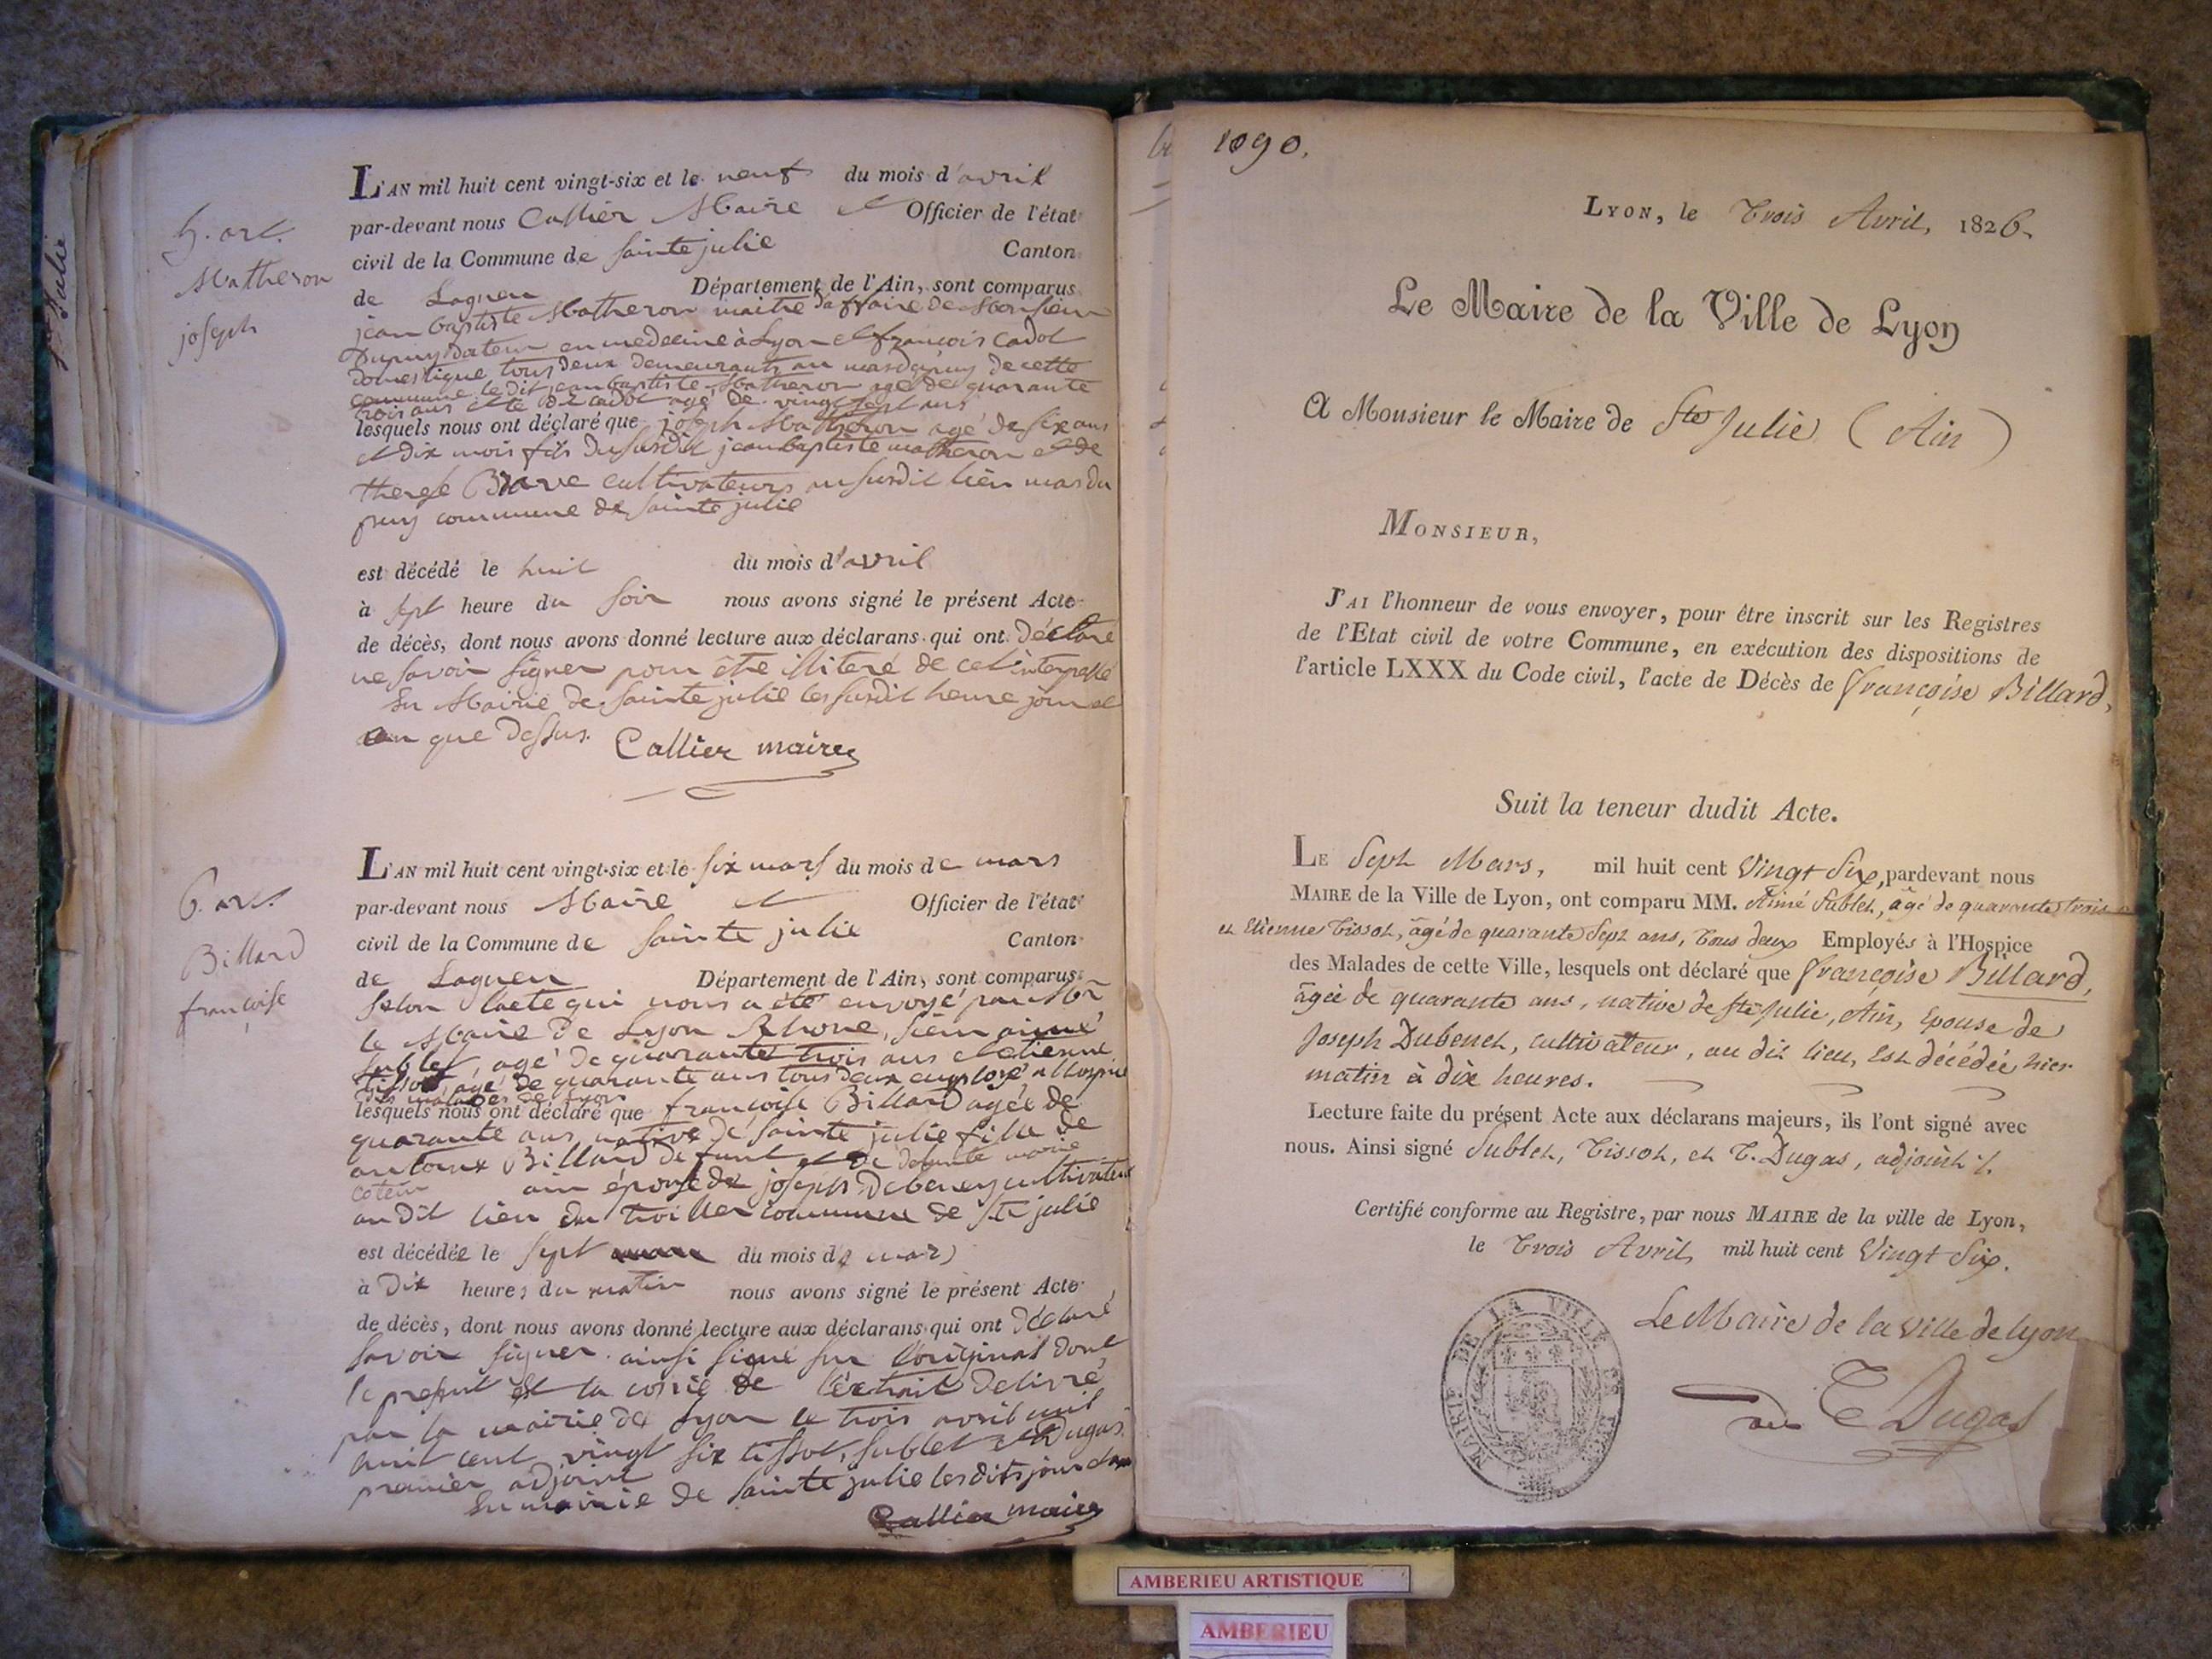 Ste Julie
5. act.
Matheron
joseph
L'AN mil huit cent vingt-six et le neuf du mois d'avril
par-devant nous Callier Maire et Officier de l'état
civil de la Commune de sainte julie Canton
de Lagneu Département de l'Ain, sont comparus
jean baptiste Matheron maitre d'affaire de Monsieur
Dupuy Docteur en medecine à Lyon et françois Cadot
domestique tous deux demeurants au mas dupuy de cette
commune le dit jean baptiste Matheron agé de quarante
trois ans et le dit cadot agé de vingt sept ans
lesquels nous ont déclaré que joseph Matheron agé de six ans
et dix mois fils du susdit jean baptiste matheron et de
therese Brave cultivateurs au susdit lieu mas du
puy commune de sainte julie
est décédé le huit du mois d'avril
à sept heure du soir nous avons signé le présent Acte
de décès, dont nous avons donné lecture aux déclarans qui ont déclaré
ne savoir signer pour être illiteré de ce interpellé
En Mairie de sainte julie les susdit heure jour et
an que dessus. Callier maire
6. act.
Billard
françoise
L'AN mil huit cent vingt-six et le six mars du mois de mars
par-devant nous Maire et Officier de l'état
civil de la Commune de sainte julie Canton
de Lagneu Département de l'Ain, sont comparus
selon l'acte qui nous a été envoyé par Mr
le Maire de Lyon Rhone, sieur aimé
sublet, agé de quarante trois ans et etienne
tissot, agé de quarante ans tous deux employé a l'hospice
des malades de Lyon
lesquels nous ont déclaré que françoise Billard agée de
quarante ans native de sainte julie fille de
antoine Billard defunt et de defunte marie
ain épouse de joseph Debeney cultivateur
au dit lieu du commune de Ste julie
est décédée le sept du mois de mars
à dix heures du matin nous avons signé le présent Acte
de décès, dont nous avons donné lecture aux déclarans qui ont déclaré
savoir signer. ainsi signé sur l'original dont
le present est la copie de l'extrait delivré
par la mairie de Lyon le trois avril mil
huit cent vingt six tissot, sublet et Dugas
premier adjoint
En mairie de sainte julie les dits jour et an
Callier maire
1090.
LYON, le Trois Avril, 1826.
Le Maire de la Ville de Lyon
A Monsieur le Maire de Ste Julie (Ain)
MONSIEUR,
J'AI l'honneur de vous envoyer, pour être inscrit sur les Registres
de l'Etat civil de votre Commune, en exécution des dispositions de
l'article LXXX du Code civil, l'acte de Décès de françoise Billard,
Suit la teneur dudit Acte.
LE Sept Mars, mil huit cent Vingt Six, pardevant nous
MAIRE de la Ville de Lyon, ont comparu MM. Aimé Sublet, âgé de quarante trois
et Etienne Tissot, âgé de quarante Sept ans, tous deux Employés à l'Hospice
des Malades de cette Ville, lesquels ont déclaré que françoise Billard,
âgée de quarante ans, native de Ste Julie, Ain, Epouse de
Joseph Dubenet, cultivateur, au dit lieu, Est décédée hier
matin à dix heures.
Lecture faite du présent Acte aux déclarans majeurs, ils l'ont signé avec
nous. Ainsi signé Sublet, Tissot, et T. Dugas, adjoint.
Certifié conforme au Registre, par nous MAIRE de la ville de Lyon,
le Trois Avril, mil huit cent Vingt Six.
Le Maire de la ville de Lyon
MAIRIE DE LA VILLE DE LYON
T Dugas
AMBERIEU ARTISTIQUE
AMBERIEU